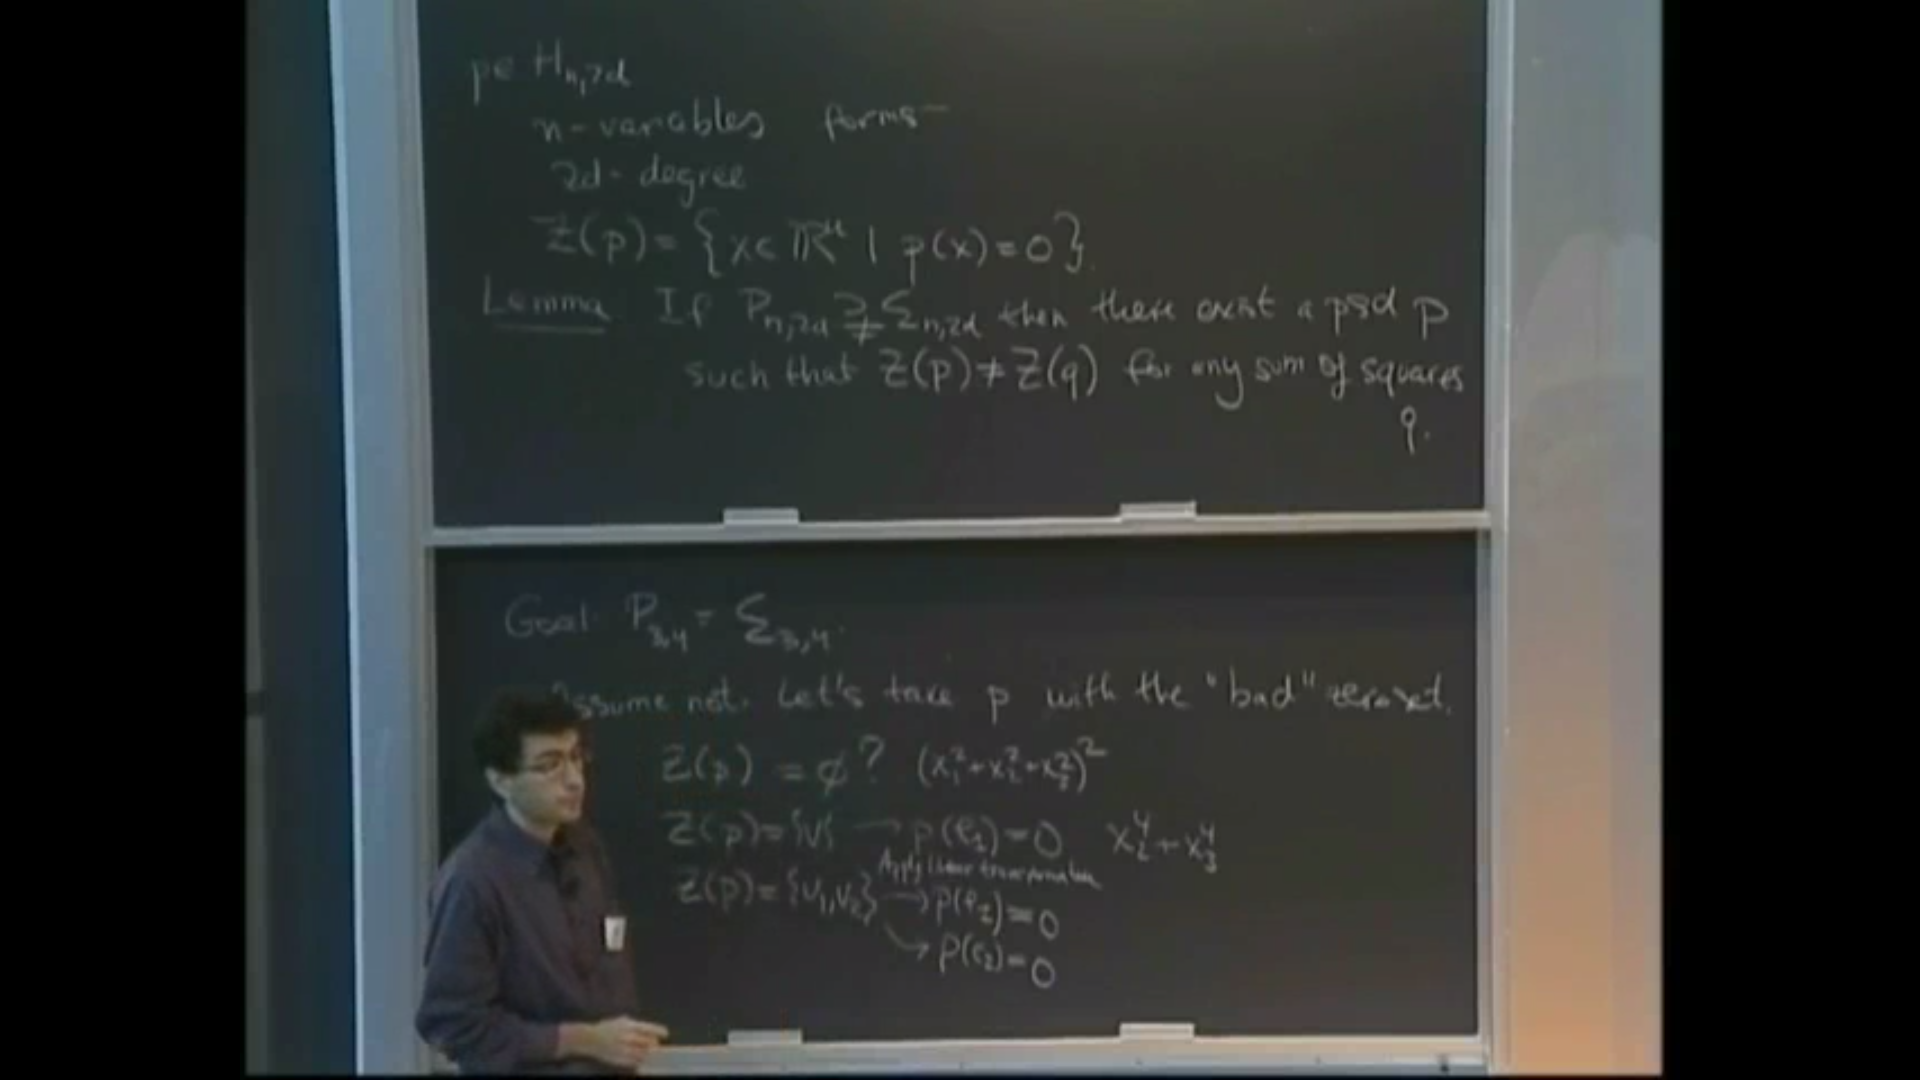 p∈ H_{n,2d}
n-variables forms
2d-degree
Z(p) = {x∈ ℝⁿ | p(x)=0}.
Lemma If P_{n,2d} ⊋ Σ_{n,2d} then there exist a psd p
such that Z(p) ≠ Z(q) for any sum of squares
q.
Goal: P_{3,4} = Σ_{3,4}.
Assume not. Let's take p with the "bad" zero set.
Z(p) = ∅? (x₁²+x₂²+x₃²)²
Z(p)={v} → p(e₁)=0 x₂⁴+x₃⁴
Apply linear transformation
Z(p)={v₁,v₂} → p(e₁)=0
↘ p(e₂)=0